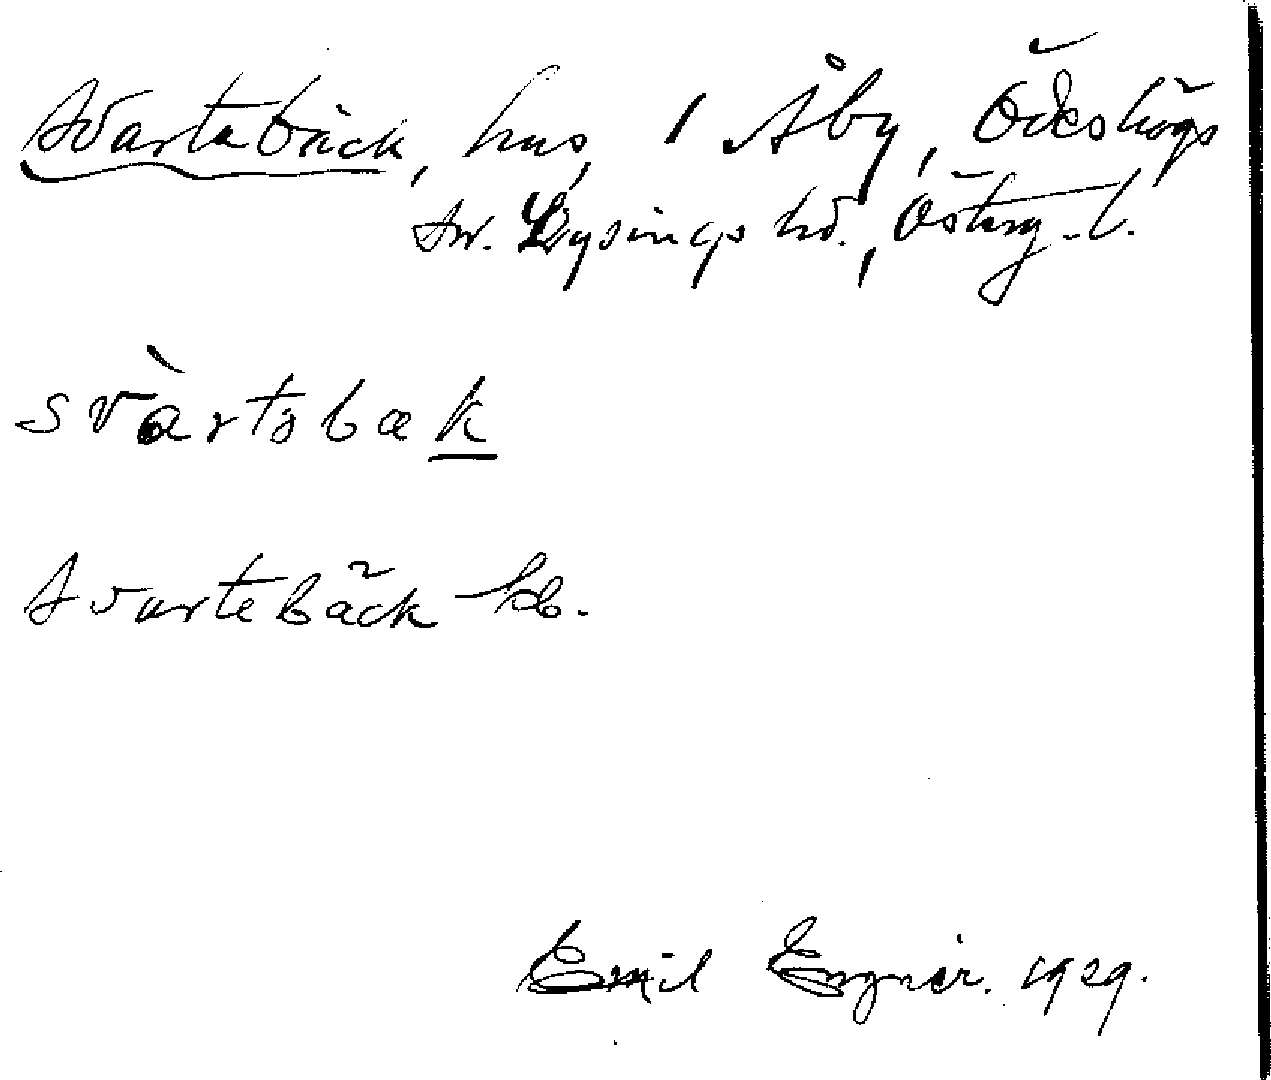 Svartabäck, hus, 1 Åby, Ödeshögs
sn. Lysings hd., Österg. l.
svàrtəbæk
Svartebäck hb.
Emil Engnér. 1929.